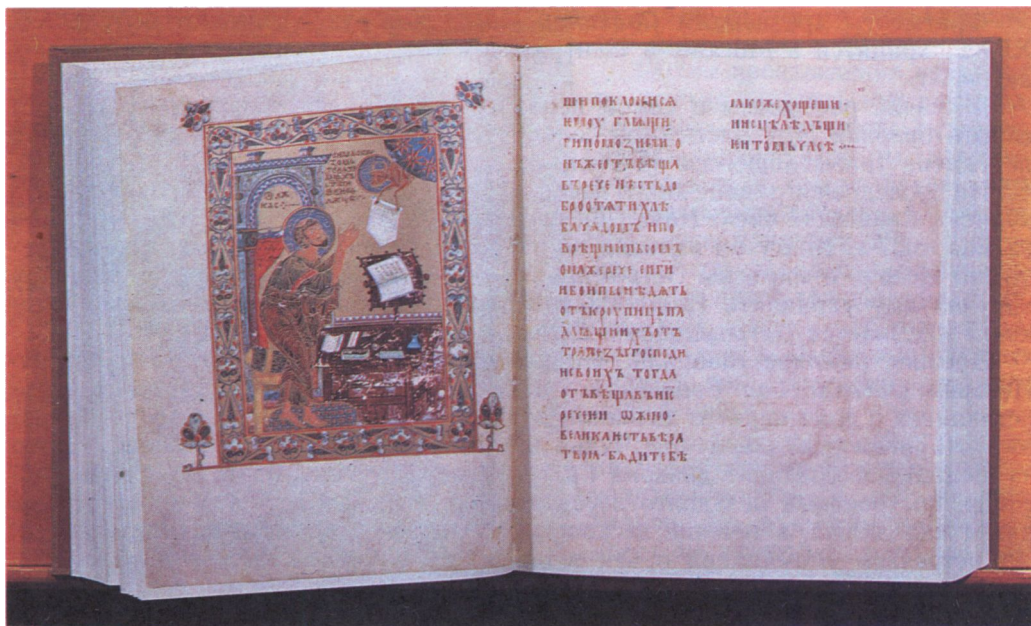 ШИПОКЛОНИСѦ
ѤМОУ ГЛ҃ѬЩИ·
ГИ҃ПОМОЗИМИ О
НЪЖЕОТЪВѢЩА
ВЪРЕЧЕ НѢСТЬДО
БРООТѦТИ ХЛѢ
БАЧѦДОМЪ ИПО
ВРѢЩИИПЬСОМЪ
ОНАЖЕРЕЧЕ ЕИГИ҃
ИБОИПЬСИѢДѦТЬ
ОТЪКРОУПИЦЬПА
ДАѬЩИИХЪОТЪ
ТРАПЕЗЫГОСПОДИ
ИСВОИХЪ ТОГДА
ОТЪВѢЩАВЪИС҃
РЕЧЕѤИ ѠЖЕНО·
ВЕЛИКАѤСТЬВѢРА
ТВОꙖ·БѪДИТЕБѢ
ꙖКОЖЕХОЩЕШИ·
ИИСЦѢЛѢДЪЩИ·
ѤИТОМЬЧАСѢ